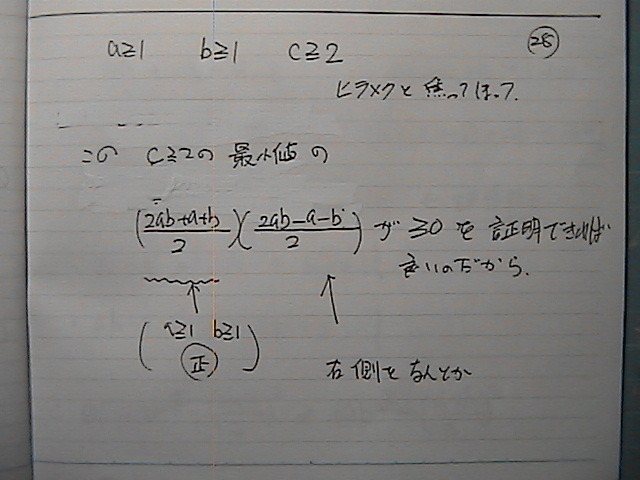 a≧1 b≧1 c≧2 ㉘
ヒラメクと 焦って
この c≧2の 最小値 の
(2ab+a+b/2)(2ab-a-b/2) が ≧0 を 証明できれば
良いのだから.
(a≧1 b≧1
正)
右側を なんとか